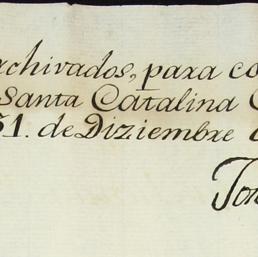 archivados, para co
Santa Catalina
31. de Diziembre